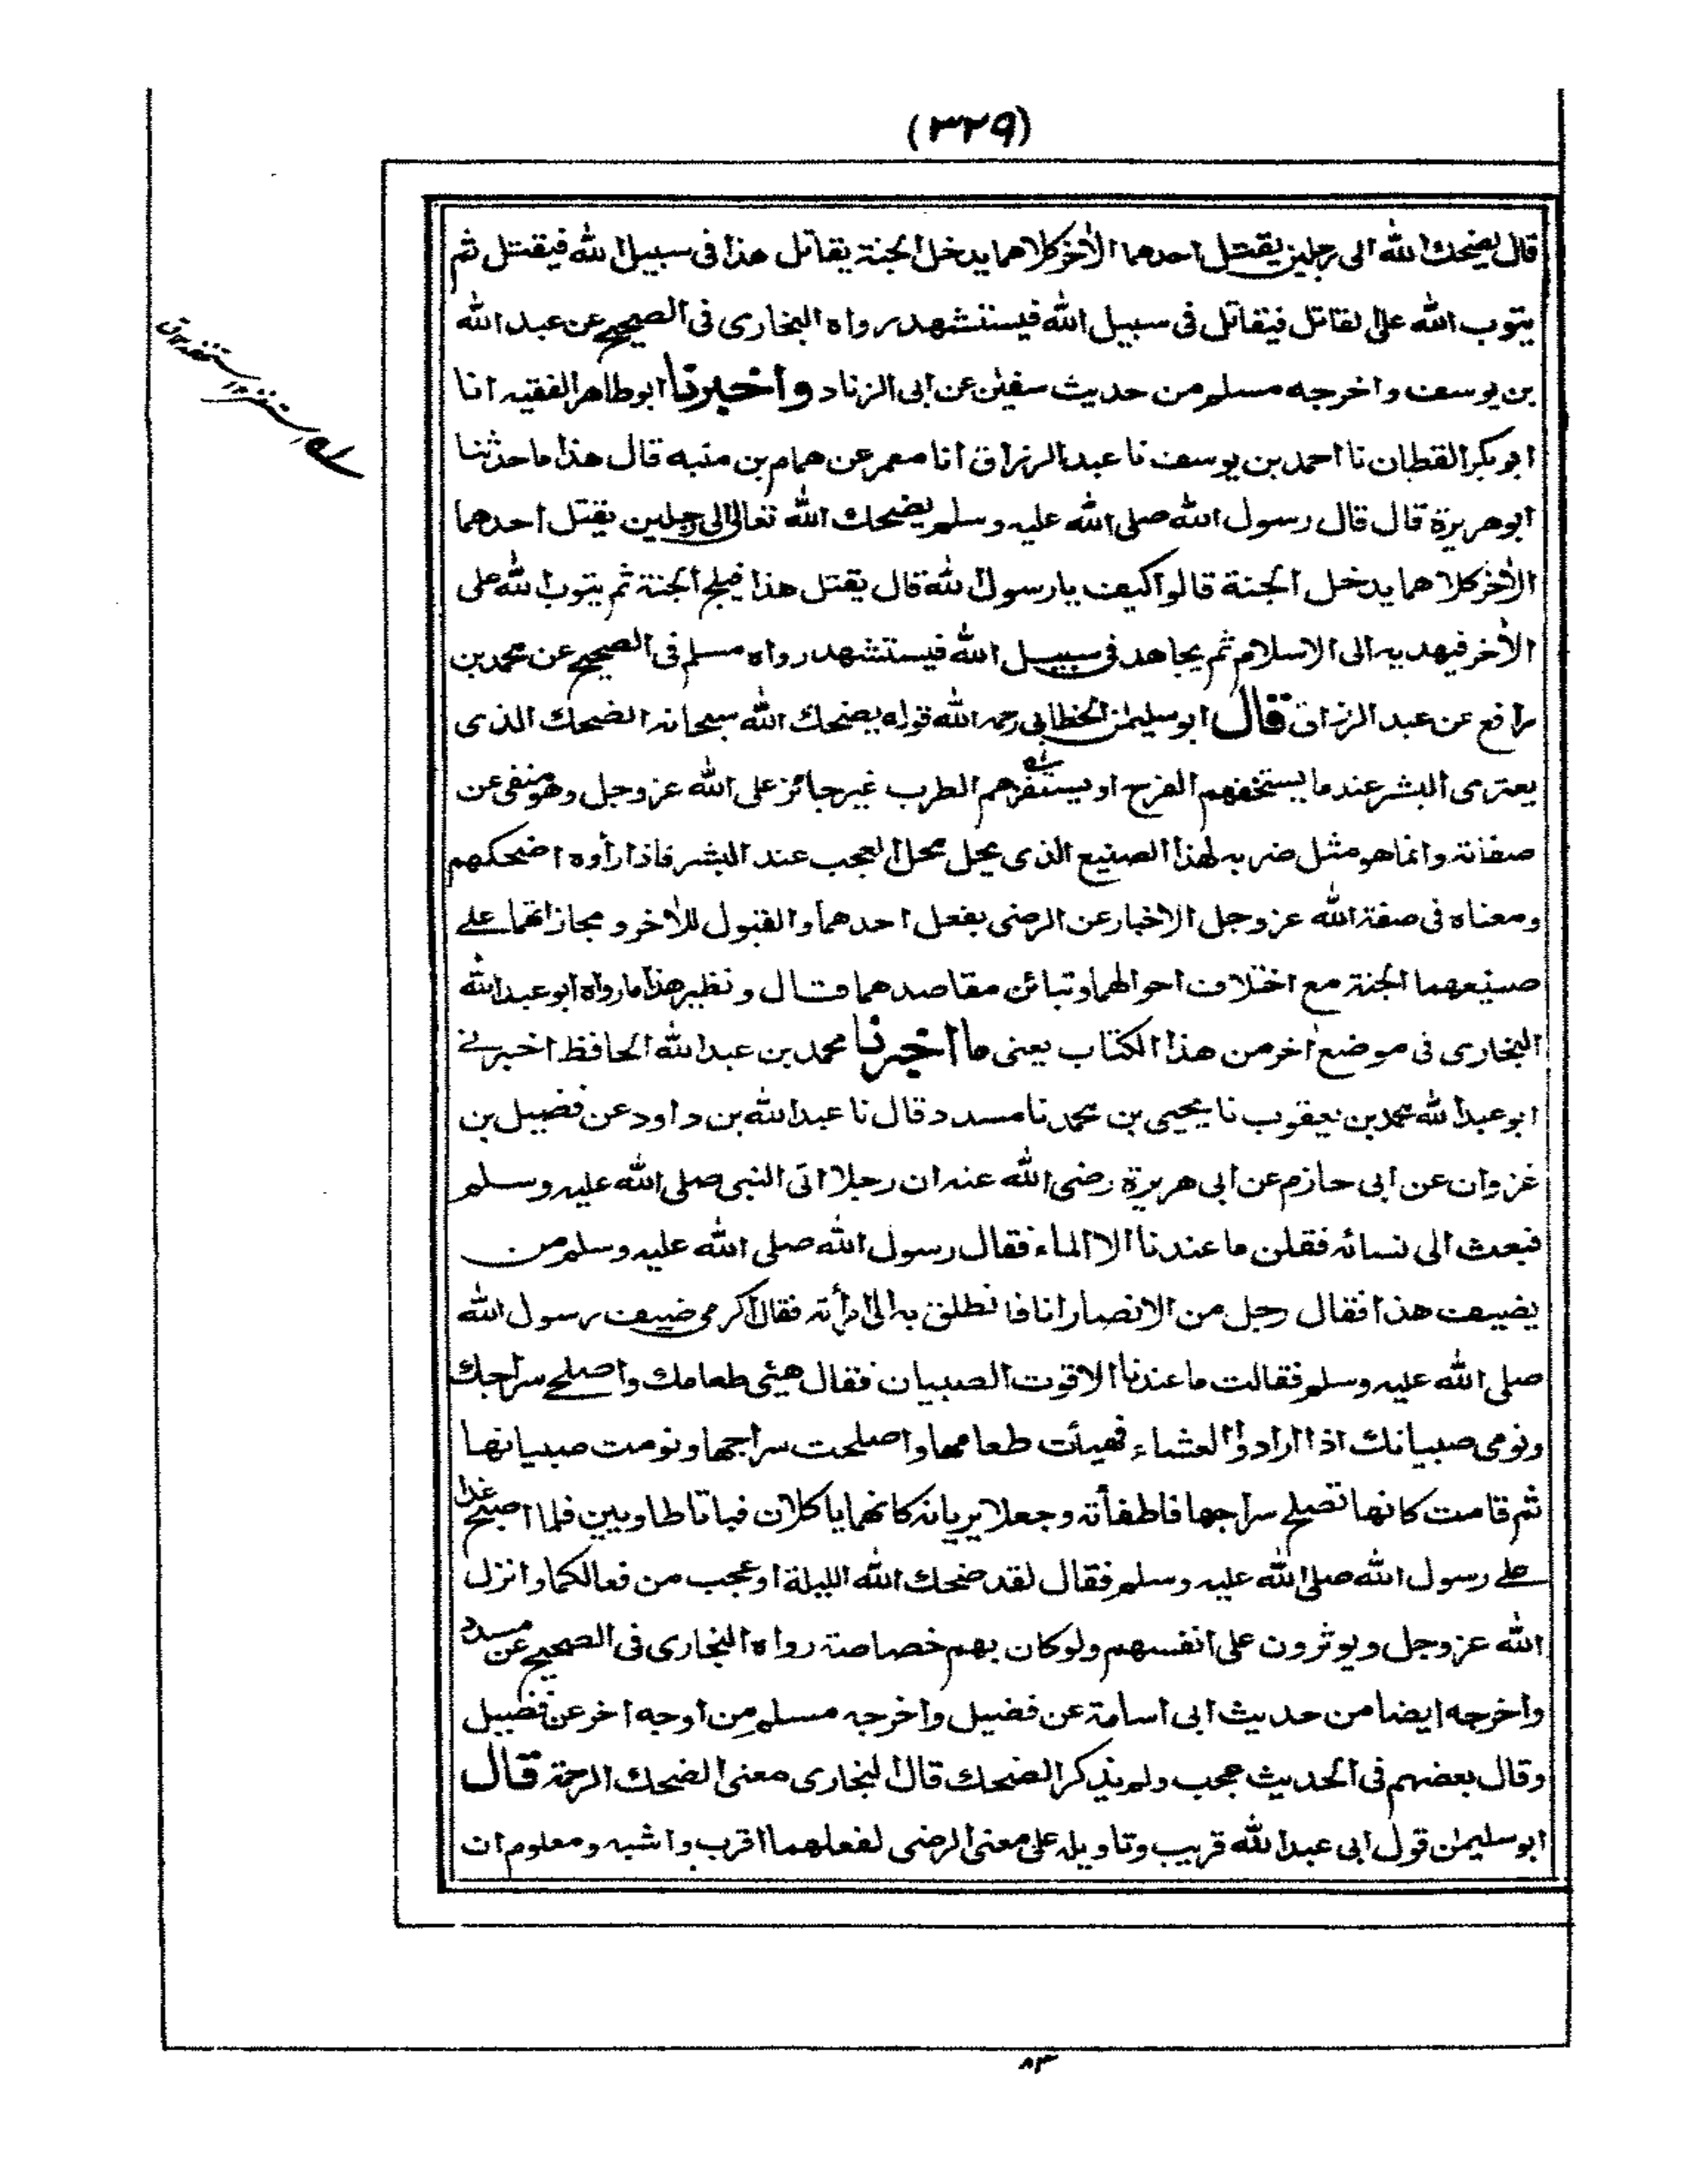 (٣٢٩)
قال يضحك الله الى رجلين يقتل احدهما الأخر كلاهما يدخل الجنة يقاتل هذا فى سبيل الله فيقتل ثم
يتوب الله على القاتل فيقاتل فى سبيل الله فيستشهد رواه البخارى فى الصحيح عن عبد الله
بن يوسف واخرجه مسلم من حديث سفين عن ابى الزناد واخبرنا ابو طاهر الفقيه انا
ابو بكر القطان نا احمد بن يوسف نا عبد الرزاق انا معمر عن همام بن منبه قال هذا ما حدثنا
ابو هريرة قال قال رسول الله صلى الله عليه وسلم يضحك الله تعالى الى رجلين يقتل احدهما
الأخر كلاهما يدخل الجنة قالوا كيف يا رسول الله قال يقتل هذا فيلج الجنة ثم يتوب الله على
الأخر فيهديه الى الاسلام ثم يجاهد فى سبيل الله فيستشهد رواه مسلم فى الصحيح عن محمد بن
رافع عن عبد الرزاق قال ابو سليمن الخطابى رحمه الله قوله يضحك الله سبحانه الضحك الذى
يعترى البشر عند ما يستخفهم الفرح او يستفزهم الطرب غير جائز على الله عز وجل وهو منفى عن
صفاته وانما هو مثل ضربه لهذا الصنيع الذى يحل محل العجب عند البشر فاذا رأوه اضحكهم
ومعناه فى صفة الله عز وجل الاخبار عن الرضى بفعل احدهما والقبول للأخر ومجازاتهما على
صنيعهما الجنة مع اختلاف احوالهما وتبائن مقاصدهما قال ونظير هذا ما رواه ابو عبد الله
البخارى فى موضع أخر من هذا الكتاب يعنى ما اخبرنا محمد بن عبد الله الحافظ اخبرنى
ابو عبد الله محمد بن يعقوب نا يحيى بن محمد نا مسدد قال نا عبد الله بن داود عن فضيل بن
غزوان عن ابى حازم عن ابى هريرة رضى الله عنه ان رجلا اتى النبى صلى الله عليه وسلم
فبعث الى نسائه فقلن ما عندنا الا الماء فقال رسول الله صلى الله عليه وسلم من
يضيف هذا فقال رجل من الانصار انا فانطلق به الى امرأته فقال اكرمى ضيف رسول الله
صلى الله عليه وسلم فقالت ما عندنا الا قوت الصبيان فقال هيئى طعامك واصلحى سراجك
ونومى صبيانك اذا ارادوا العشاء فهيأت طعامها واصلحت سراجها ونومت صبيانها
ثم قامت كانها تصلح سراجها فاطفأته وجعلا يريانه كانهما ياكلان فباتا طاويين فلما اصبح غدا
على رسول الله صلى الله عليه وسلم فقال لقد ضحك الله الليلة او عجب من فعالكما وانزل
الله عز وجل ويوثرون على انفسهم ولو كان بهم خصاصة رواه البخارى فى الصحيح عن مسدد
واخرجه ايضا من حديث ابى اسامة عن فضيل واخرجه مسلم من اوجه اخر عن فضيل
وقال بعضهم فى الحديث عجب ولم يذكر الضحك قال البخارى معنى الضحك الرحمة قال
ابو سليمن قول ابى عبد الله قريب وتاويله على معنى الرضى لفعلهما اقرب واشبه ومعلوم ان